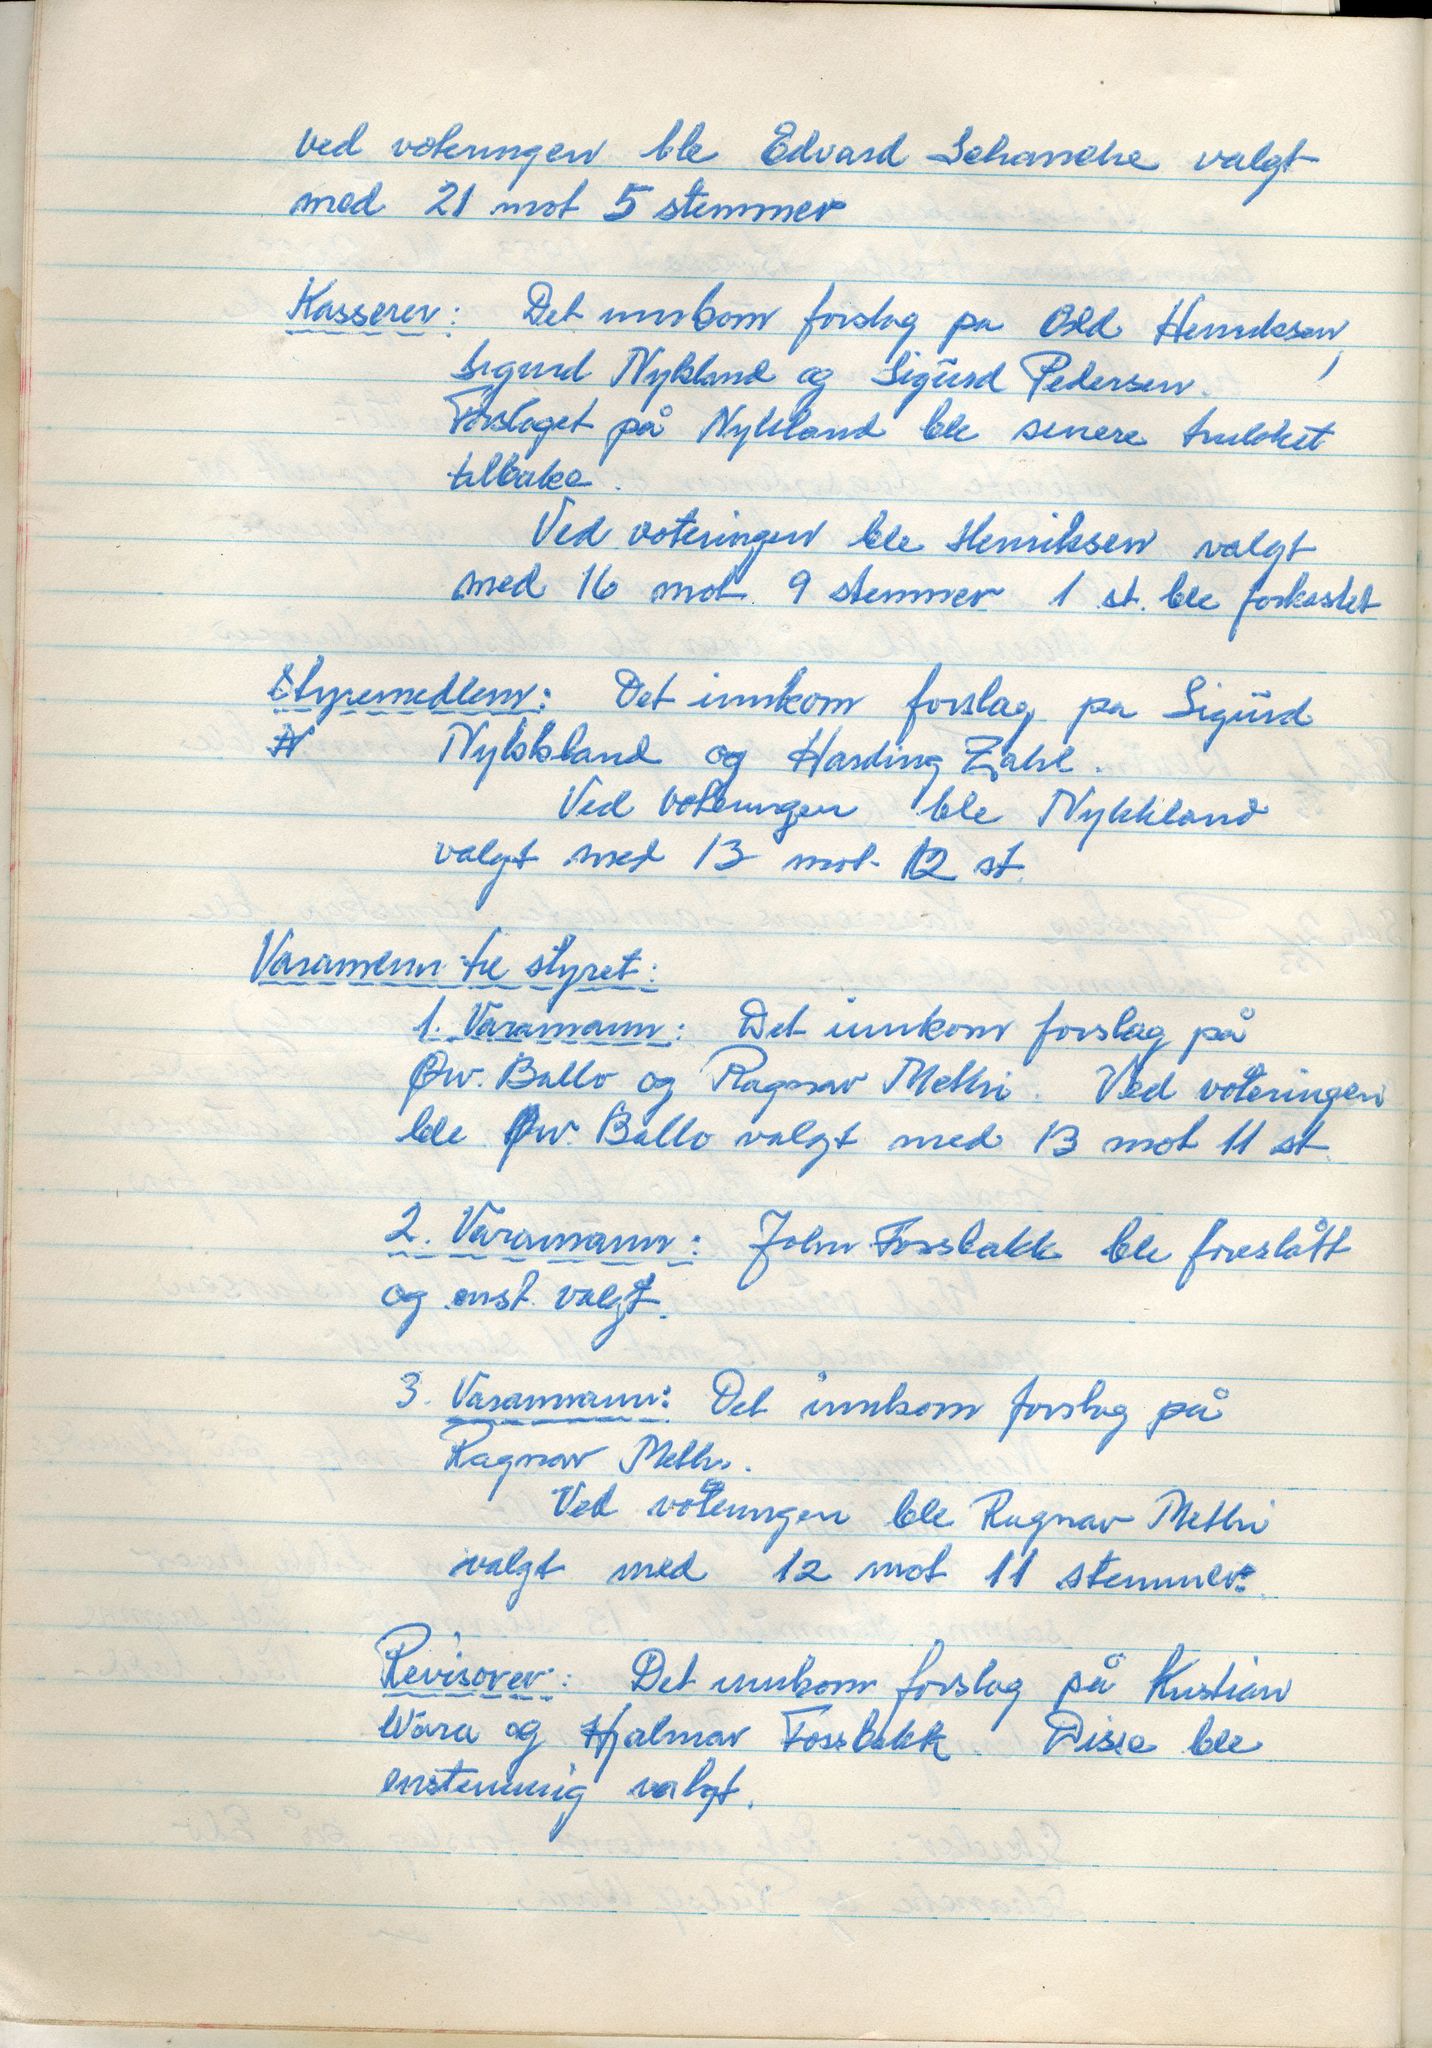 ved voteringen ble Edvard Schanche valgt
med 21 mot 5 stemmer
Kasserer: Det innkom forslag på Odd Henriksen,
Sigurd Nykland og Sigurd Pedersen.
Forslaget på Nykland ble senere trukket
tilbake.
Ved voteringen ble Henriksen valgt
med 16 mot 9 stemmer 1 st. ble forkastet
Styremedlem: Det innkom forslag på Sigurd
Nykkland og Harding Zahl.
Ved voteringen ble Nykkland
valgt med 13 mot 12 st.
Varamenn til styret:
1. Varamann: Det innkom forslag på
Øiv. Ballo og Ragnar Methi. Ved voteringen
ble Øiv. Ballo valgt med 13 mot 11 st.
2. Varamann: John Fossbakk ble foreslått
og enst. valgt.
3. Varamann: Det innkom forslag på
Ragnar Methi.
Ved voteringen ble Ragnar Methi
valgt med 12 mot 11 stemmer.
Revisorer: Det innkom forslag på Kristian
Wara og Hjalmar Fossbakk. Disse ble
enstemmig valgt.